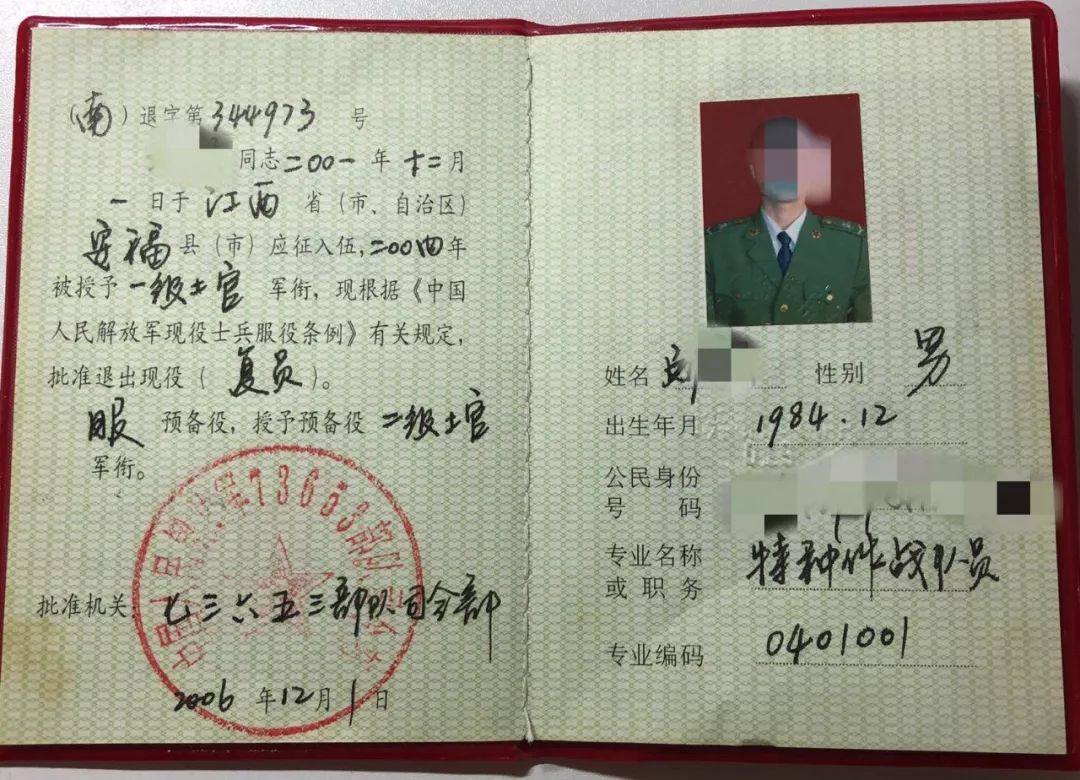 （南）退字第344973号
同志二00一年十二月
一日于江西省（市、自治区）
安福县（市）应征入伍，二00四年
被授予一级士官军衔，现根据《中国
人民解放军现役士兵服役条例》有关规定，
批准退出现役（复员）。
服预备役，授予预备役二级士官
军衔。
中国人民解放军73653部队司令部
批准机关：七三六五三部队司令部
2006年12月1日
姓名 性别 男
出生年月 1984.12
公民身份
号码
专业名称 特种作战队员
或职务
专业编码 0401001